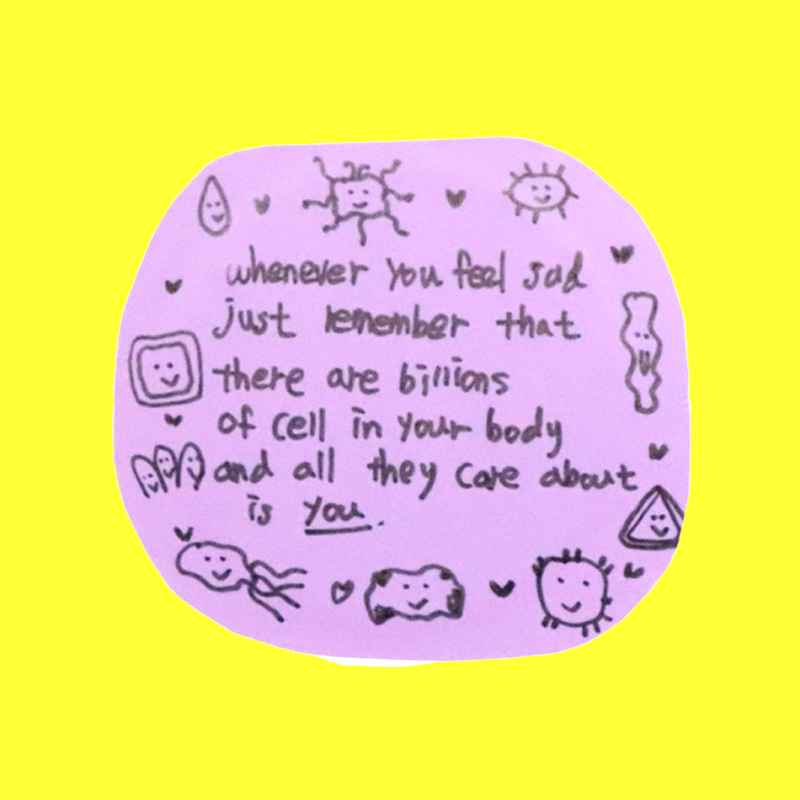 whenever you feel sad
just remember that
there are billions
of cell in your body
and all they care about
is you.